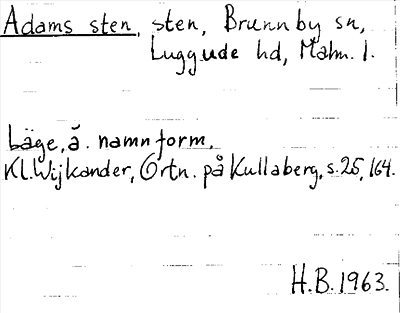 Adams sten, sten, Brunnby sn,
Luggude hd, Malm. l.
Läge, ä. namnform.
Kl. Wijkander, Ortn. på Kullaberg, s. 25, 164.
H.B. 1963.